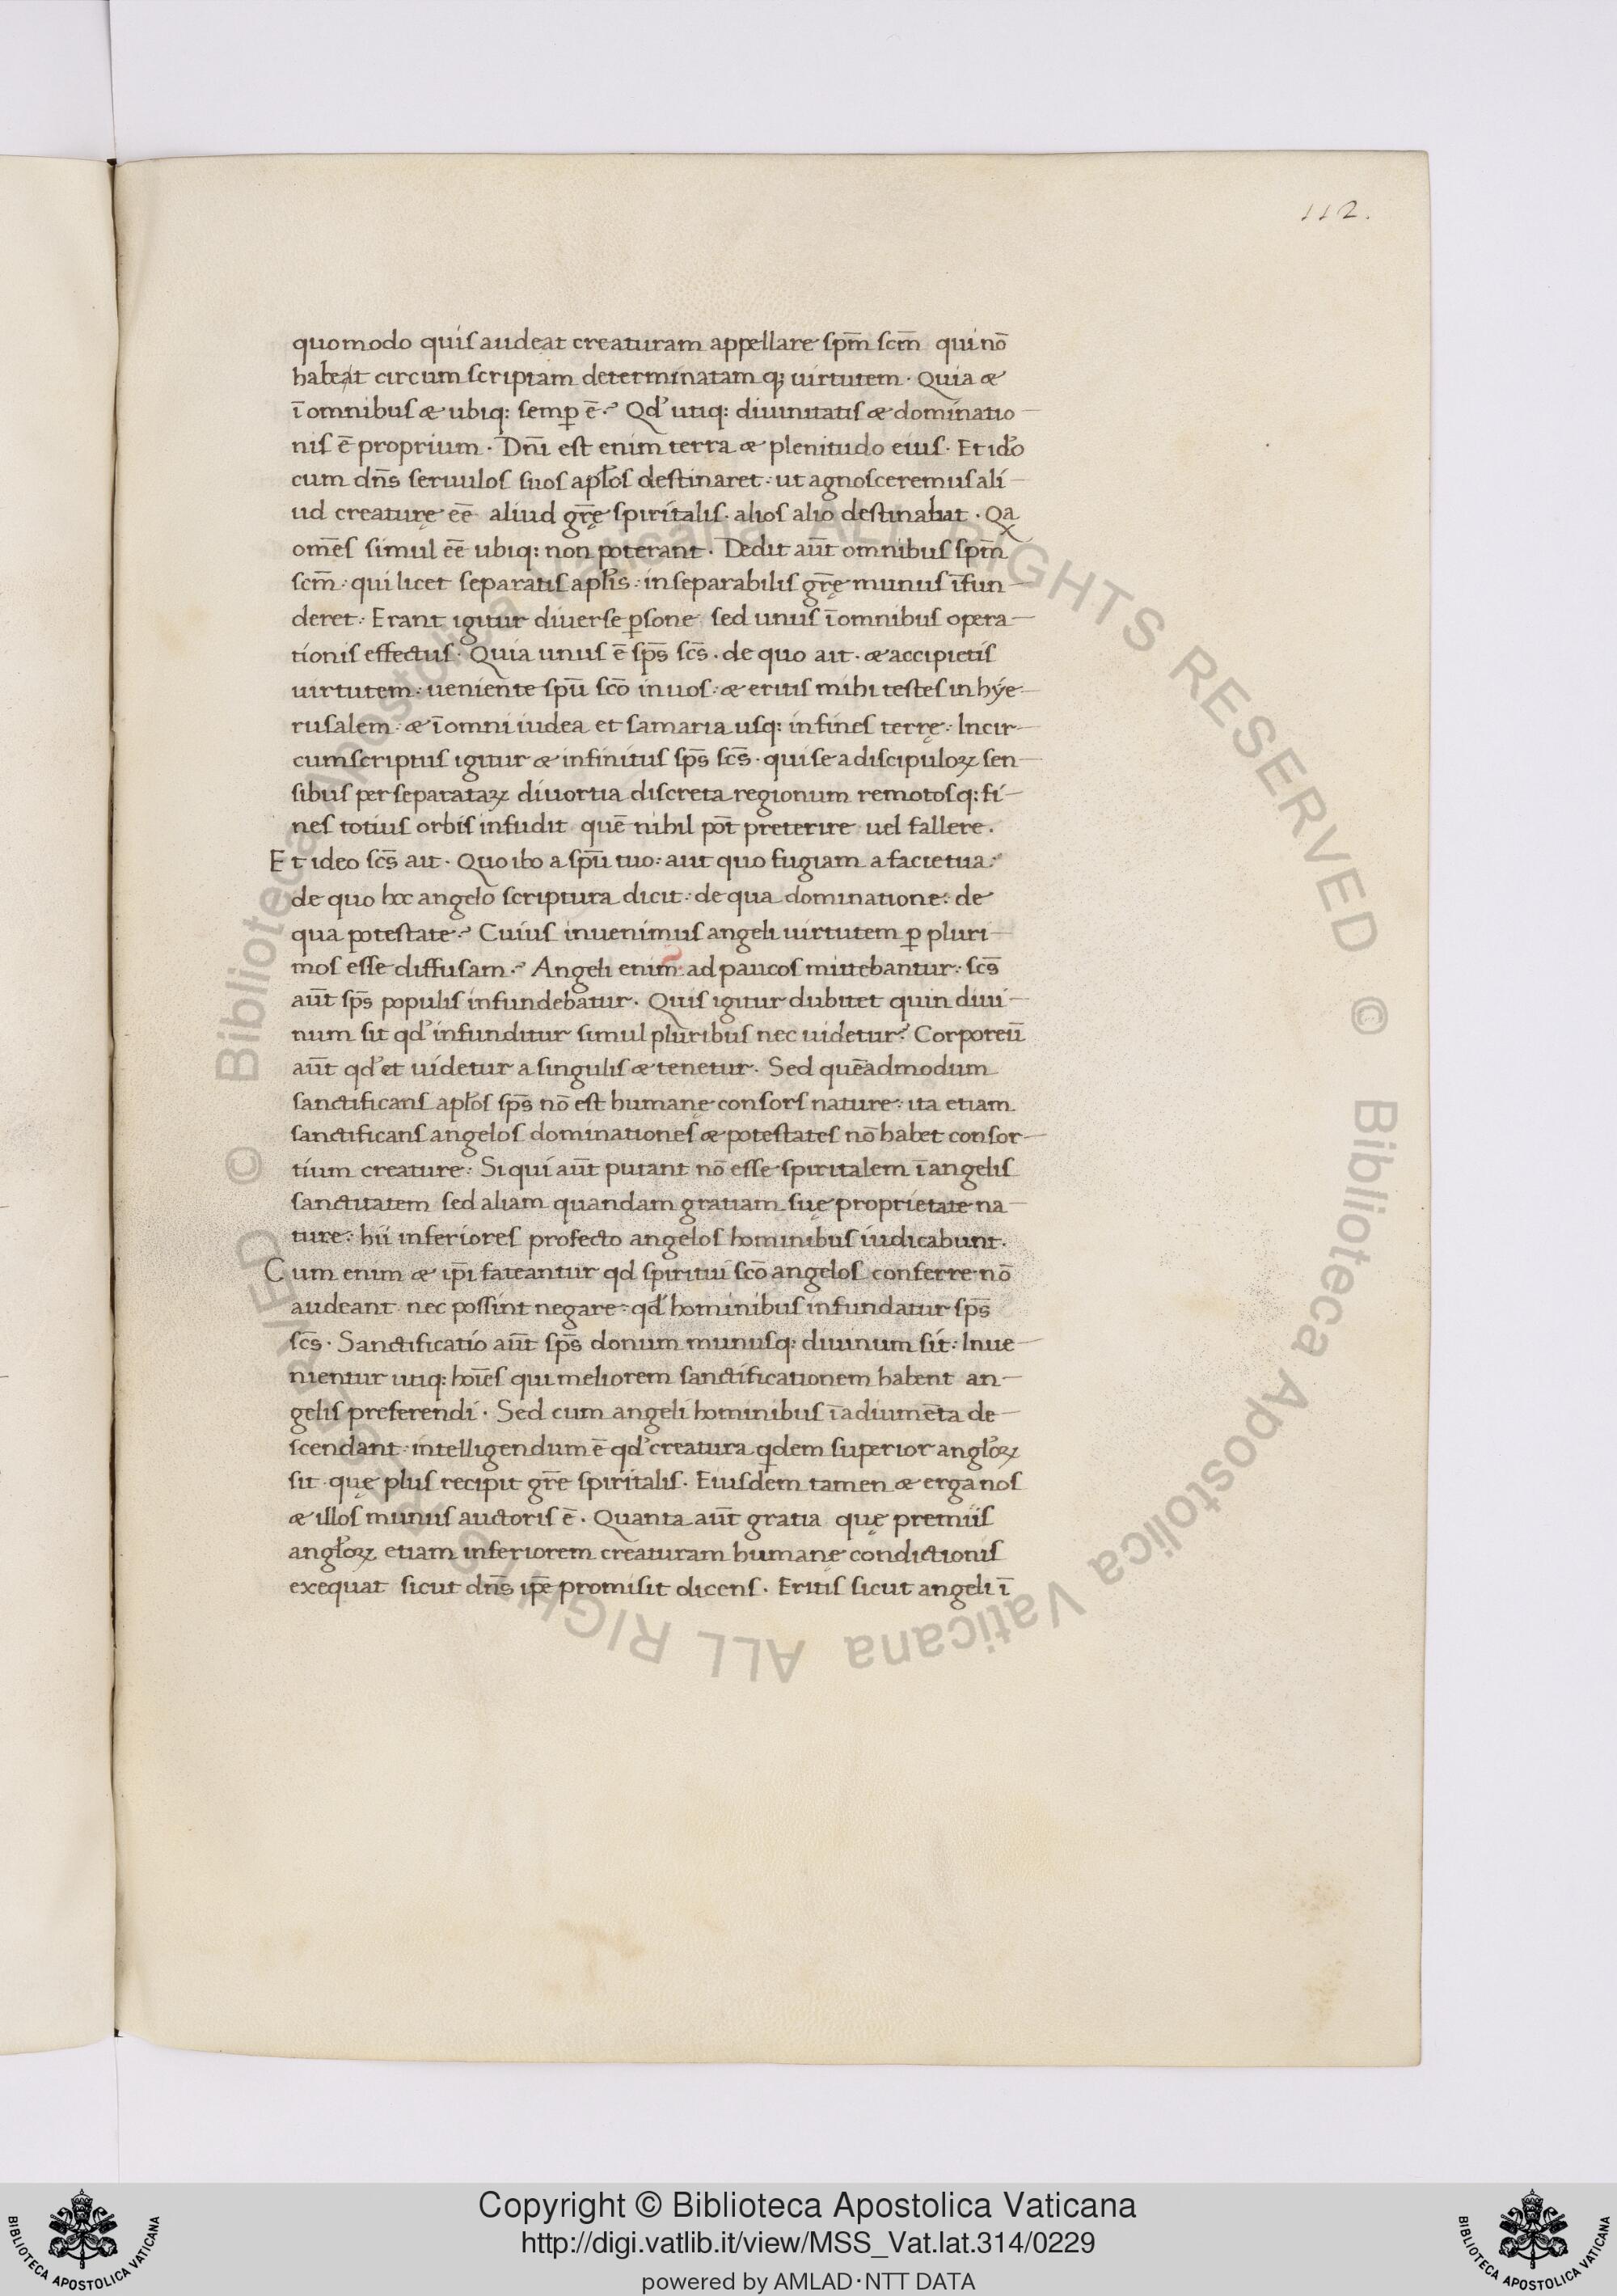 112.
quomodo quis audeat creaturam appellare spm̄ scm̄ qui nō
habeat circum scriptam determinatam q; uirtutem · Quia &
ī omnibus & ubiq: semꝑ ē ·? Qd' utiq: diuinitatis & dominatio–
nis ē proprium · Dn̄i est enim terra & plenitudo eius · Et id̊o
cum dn̄s seruulos suos apl̄os destinaret · ut agnosceremus ali–
ud creaturę eē aliud gr̄ę spiritalis · alios alio destinabat · Qa
om̄es simul eē ubiq: non poterant · Dedit aūt omnibus spm̄
scm̄ : qui licet separatis apl̄is : inseparabilis gr̄ę munus īfun–
deret : Erant igitur diuerse ꝑsone sed unus ī omnibus opera–
tionis effectus · Quia unus ē sp̄s sc̄s · de quo ait · & accipietis
uirtutem : ueniente spū scō in uos : & eritis mihi testes in hye–
rusalem : & ī omni iudea et samaria usq: in fines terrę : Incir–
cumscriptus igitur & infinitus sp̄s sc̄s · qui se a discipuloꝝ sen–
sibus per separataꝝ diuortia discreta regionum remotosq: fi–
nes totius orbis infudit quē nihil pōt preterire uel fallere .
Et ideo sc̄s ait · Quo ibo a spū tuo : aut quo fugiam a facie tua :
de quo hoc angelo scriptura dicit : de qua dominatione : de
qua potestate ·? Cuius inuenimus angeli uirtutem ꝑ pluri–
mos esse diffusam ·? Angeli enim ad paucos mittebantur : sc̄s
aūt sp̄s populis infundebatur · Quis igitur dubitet quin diui–
num sit qd' infunditur simul pluribus nec uidetur ? Corporeū
aūt qd' et uidetur a singulis & tenetur · Sed quēadmodum
sanctificans apl̄os sp̄s nō est humanę consors nature : ita etiam
sanctificans angelos dominationes & potestates nō habet consor–
tium creature : Si qui aūt putant nō esse spiritalem ī angelis
sanctitatem sed aliam quandam gratiam suę proprietate na–
ture : hii inferiores profecto angelos hominibus iudicabunt ·
Cum enim & ip̄i fateantur qd spiritui scō angelos conferre nō
audeant nec possint negare : qd' hominibus infundatur sp̄s
sc̄s · Sanctificatio aūt sp̄s donum munusq: diuinum sit : Inue–
nientur utiq: hoīes qui meliorem sanctificationem habent an–
gelis preferendi · Sed cum angeli hominibus ī adiumēta de–
scendant : intelligendum ē qd' creatura qdem superior angl̄oꝝ
sit · quę plus recipit gr̄e spiritalis · Eiusdem tamen & erga nos
& illos munus auctoris ē · Quanta aūt gratia quę premiis
angl̄oꝝ etiam inferiorem creaturam humanę condictionis
exequat sicut dn̄s ip̄e promisit dicens · Eritis sicut angeli ī
© Biblioteca Apostolica Vaticana ALL RIGHTS RESERVED © Biblioteca Apostolica Vaticana ALL RIGHTS RESERVED
Copyright © Biblioteca Apostolica Vaticana
http://digi.vatlib.it/view/MSS_Vat.lat.314/0229
powered by AMLAD·NTT DATA
BIBLIOTECA APOSTOLICA VATICANA
BIBLIOTECA APOSTOLICA VATICANA